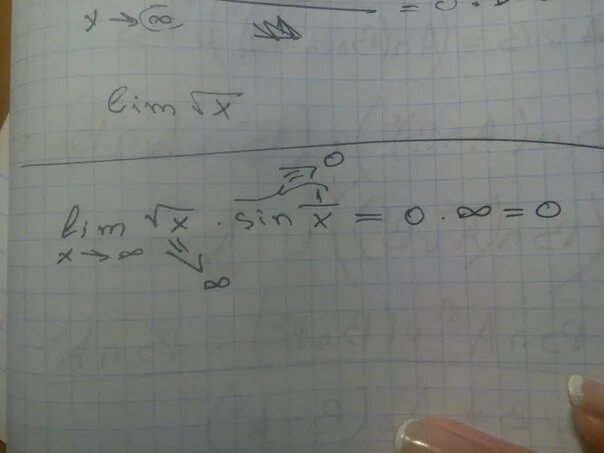 x → ∞ = 0 .
lim √x
⇒ 0
lim √x · sin 1/x = 0 · ∞ = 0
x → ∞
∞